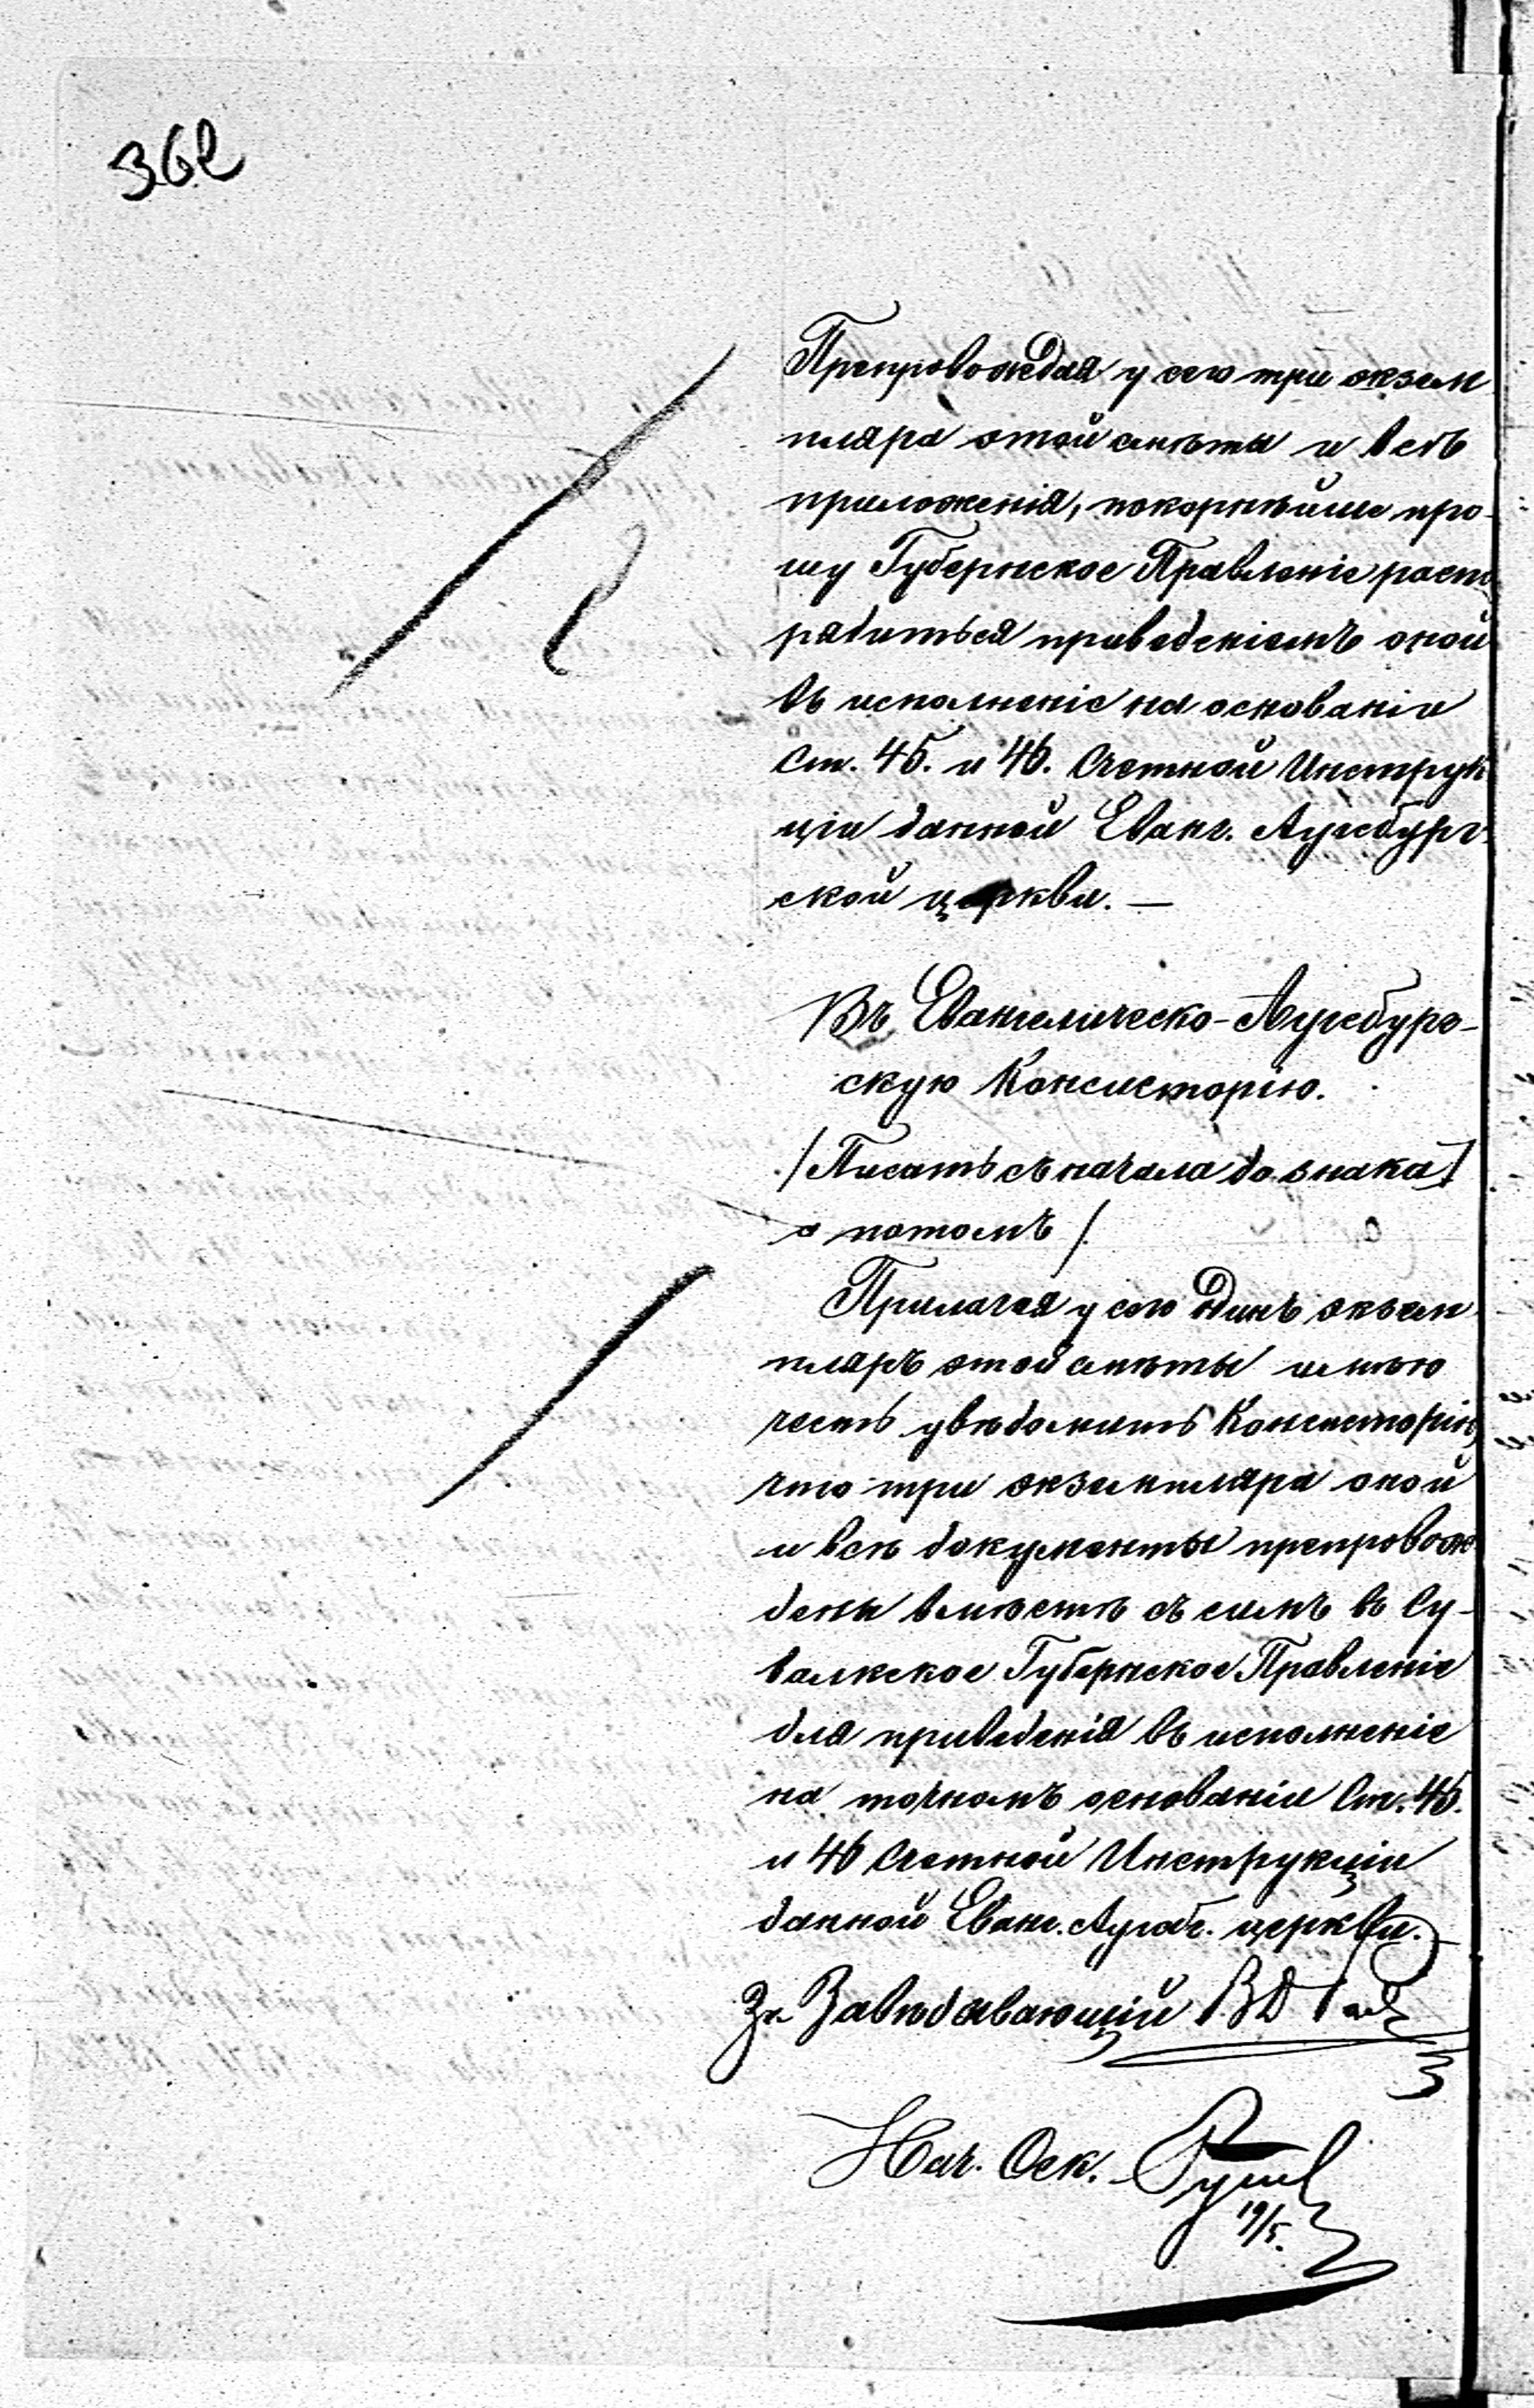 362
Препровождая у сего три экзем
пляра этой смѣты и всѣ
приложенія, покорнѣйше про-
шу Губернское Правленіе распо
рядиться приведеніемъ оной
въ исполненіе на основаніи
Ст. 45. и 46. Счетной Инструк
ціи данной Еванг. Аугсбург-
ской церкви. —
Въ Евангелическо-Аугсбург-
скую Консисторію.
/Писать съ начала до знака
а потомъ/
Прилагая у сего одинъ экзем
пляръ этой смѣты имѣю
честь увѣдомить Консисторію,
что три экземпляра оной
и всѣ документы препровож
дены вмѣстѣ съ симъ въ Су-
валкское Губернское Правленіе
для приведенія въ исполненіе
на точномъ основаніи Ст. 45.
и 46 Счетной Инструкціи
данной Еванг. Аугсб. церкви. —
За Завѣдывающій
Нач. Сек.
19/5.